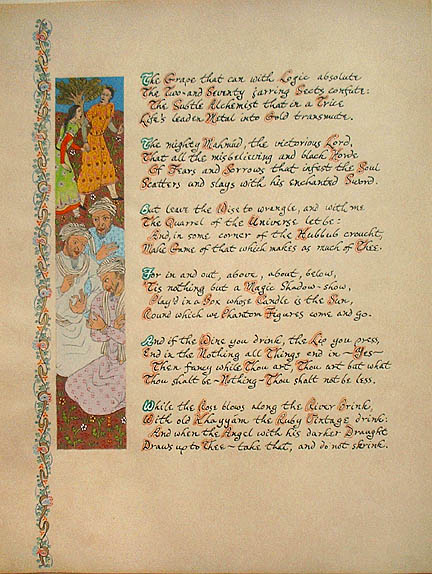 The Grape that can with Logic absolute
The Two-and-Seventy jarring Sects confute:
The Subtle Alchemist that in a Trice
Life's leaden Metal into Gold transmute.
The mighty Mahmúd, the victorious Lord,
That all the misbelieving and black Horde
Of Fears and Sorrows that infest the Soul
Scatters and slays with his enchanted Sword.
But leave the Wise to wrangle, and with me
The Quarrel of the Universe let be:
And, in some corner of the Hubbub coucht,
Make Game of that which makes as much of Thee.
For in and out, above, about, below,
'Tis nothing but a Magic Shadow-show,
Play'd in a Box whose Candle is the Sun,
Round which we Phantom Figures come and go.
And if the Wine you drink, the Lip you press,
End in the Nothing all Things end in – Yes –
Then fancy while Thou art, Thou art but what
Thou shalt be – Nothing – Thou shalt not be less.
While the Rose blows along the River Brink,
With old Khayyam the Ruby Vintage drink:
And when the Angel with his darker Draught
Draws up to Thee – take that, and do not shrink.